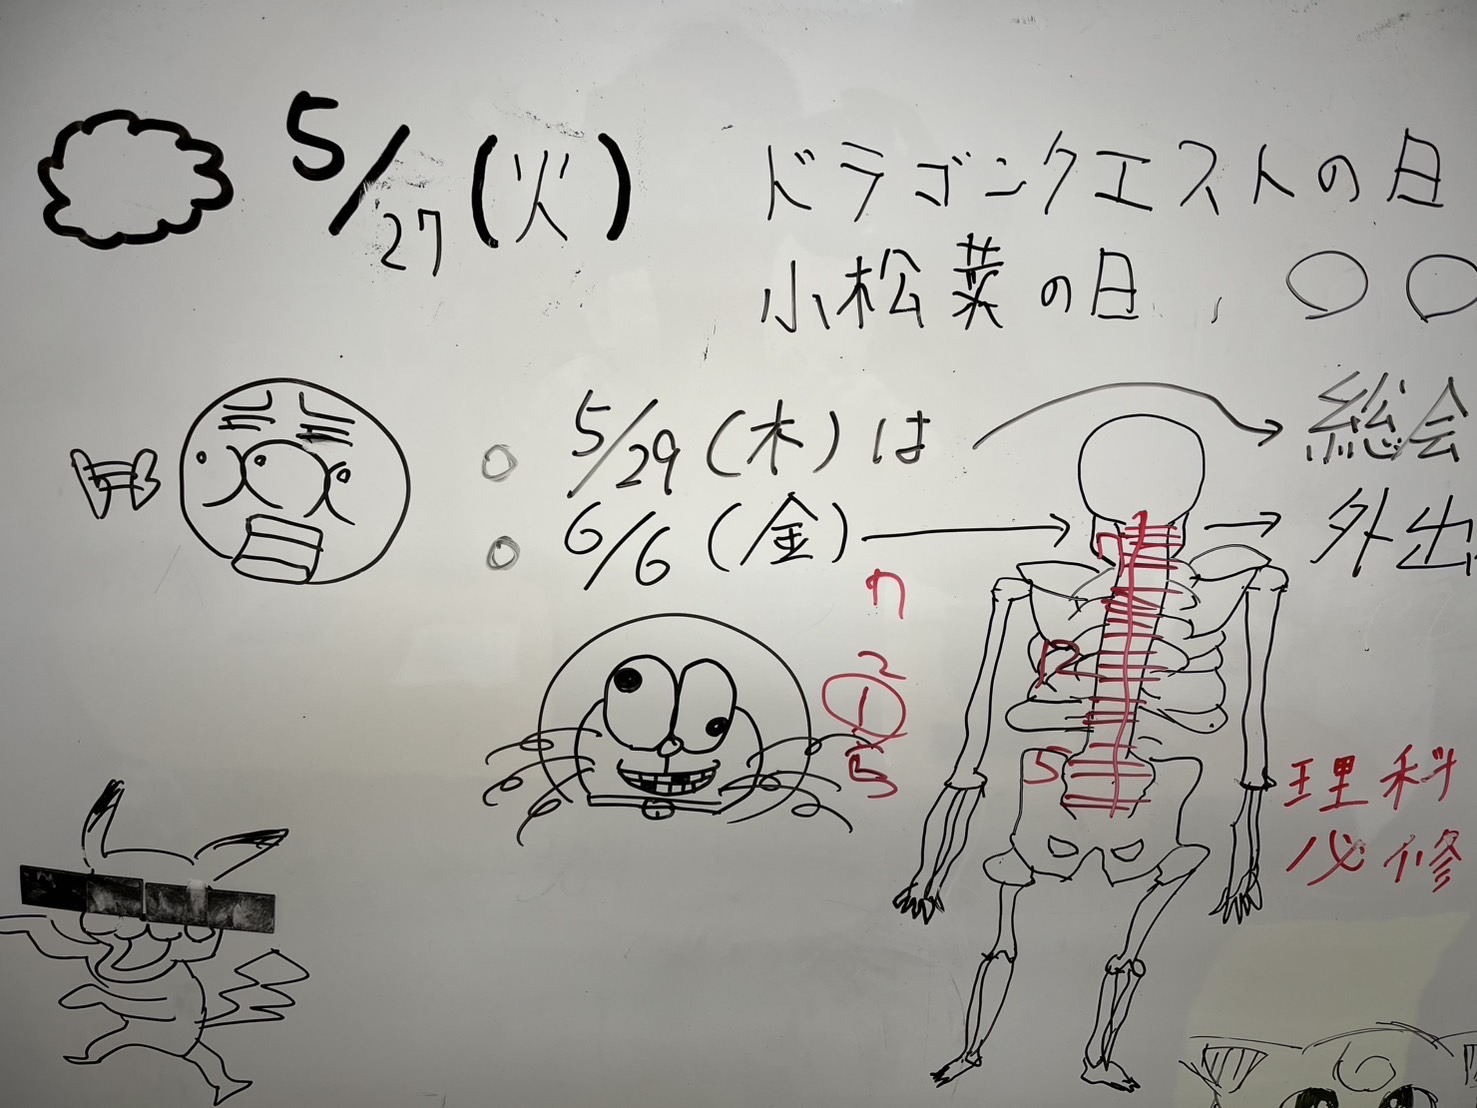 5/27(火)
ドラゴンクエストの日
小松菜の日、〇〇
5/29(木)は → 総会
6/6(金) → → 外出
7
12
5
7
12
5
理科
必修